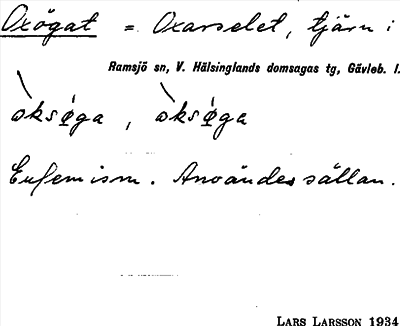 Oxögat = Oxarselet, tjärn i
Ramsjö sn, V. Hälsinglands domsagas tg, Gävleb. l.
òksø̨ga, òksø̨ga
Eufemism. Användes sällan.
LARS LARSSON 1934